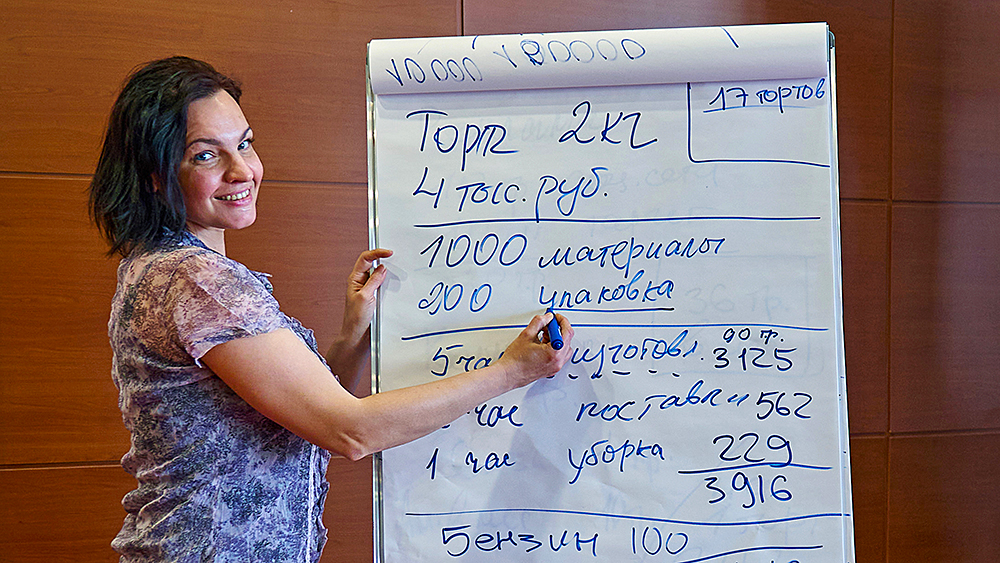 10000 10000
17 тортов
Торт 2кг
4 тыс. руб.
1000 материалы
200 упаковка
90 г.
5 час изготовл. 3125
час поставки 562
1 час уборка 229
3916
Бензин 100